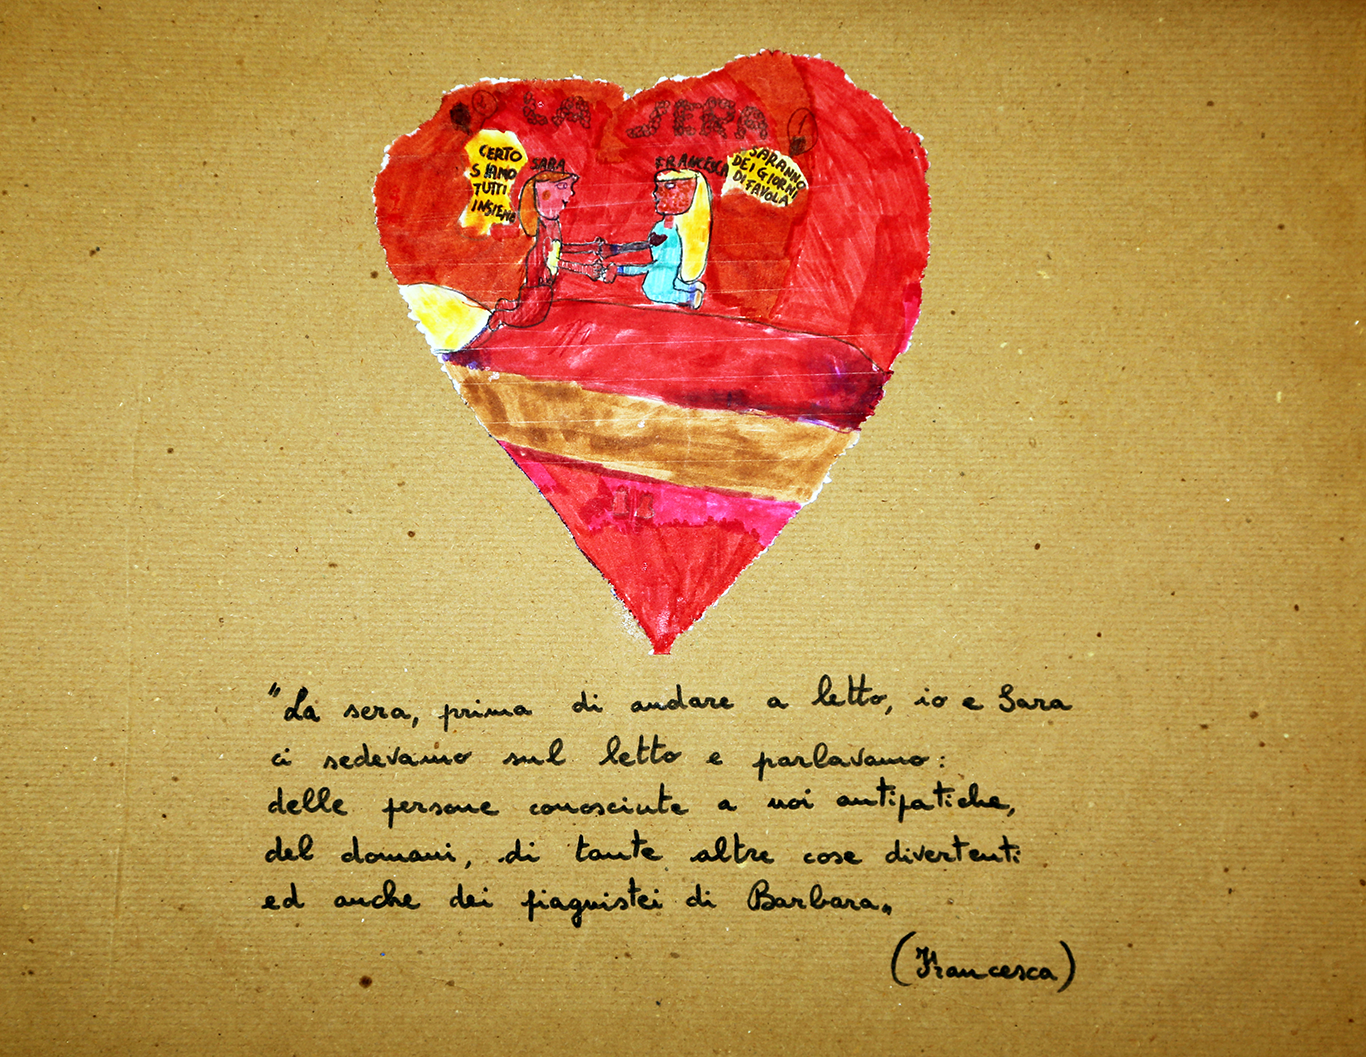 LA SERA
CERTO
SIAMO
TUTTI
INSIEME
SARA
FRANCESCA
SARANNO
DEI GIORNI
DI FAVOLA
"La sera, prima di andare a letto, io e Sara
ci sedevamo sul letto e parlavamo:
delle persone conosciute a noi antipatiche,
del domani, di tante altre cose divertenti
ed anche dei piagnistei di Barbara„
(Francesca)